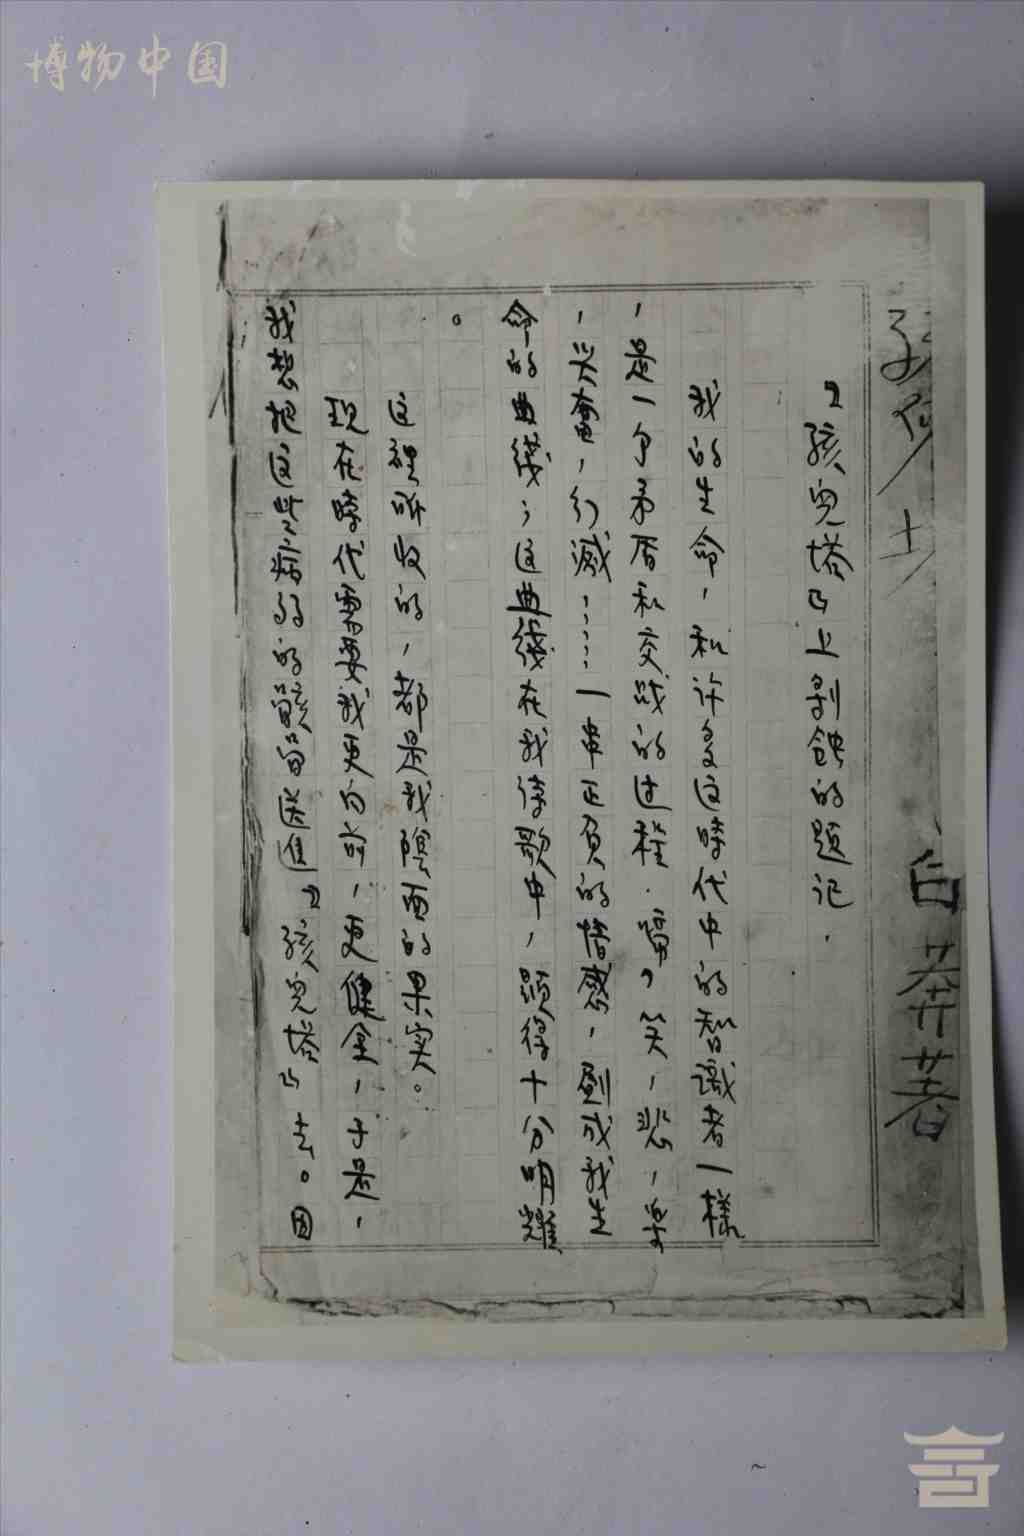 博物中国
白莽著
『孩兒塔』上剥蝕的題记.
我的生命,和许多这時代中的智識者一樣
,是一个矛盾和交战的过程.啼,笑,悲,樂
,兴奮,幻滅……一串正負的情感,劃成我生
命的曲綫;这曲綫在我诗歌中,顕得十分明耀
。
这裡所收的,都是我陰面的果实。
現在時代需要我更向前,更健全,于是,
我想把这些病弱的骸骨送進『孩兒塔』去。因